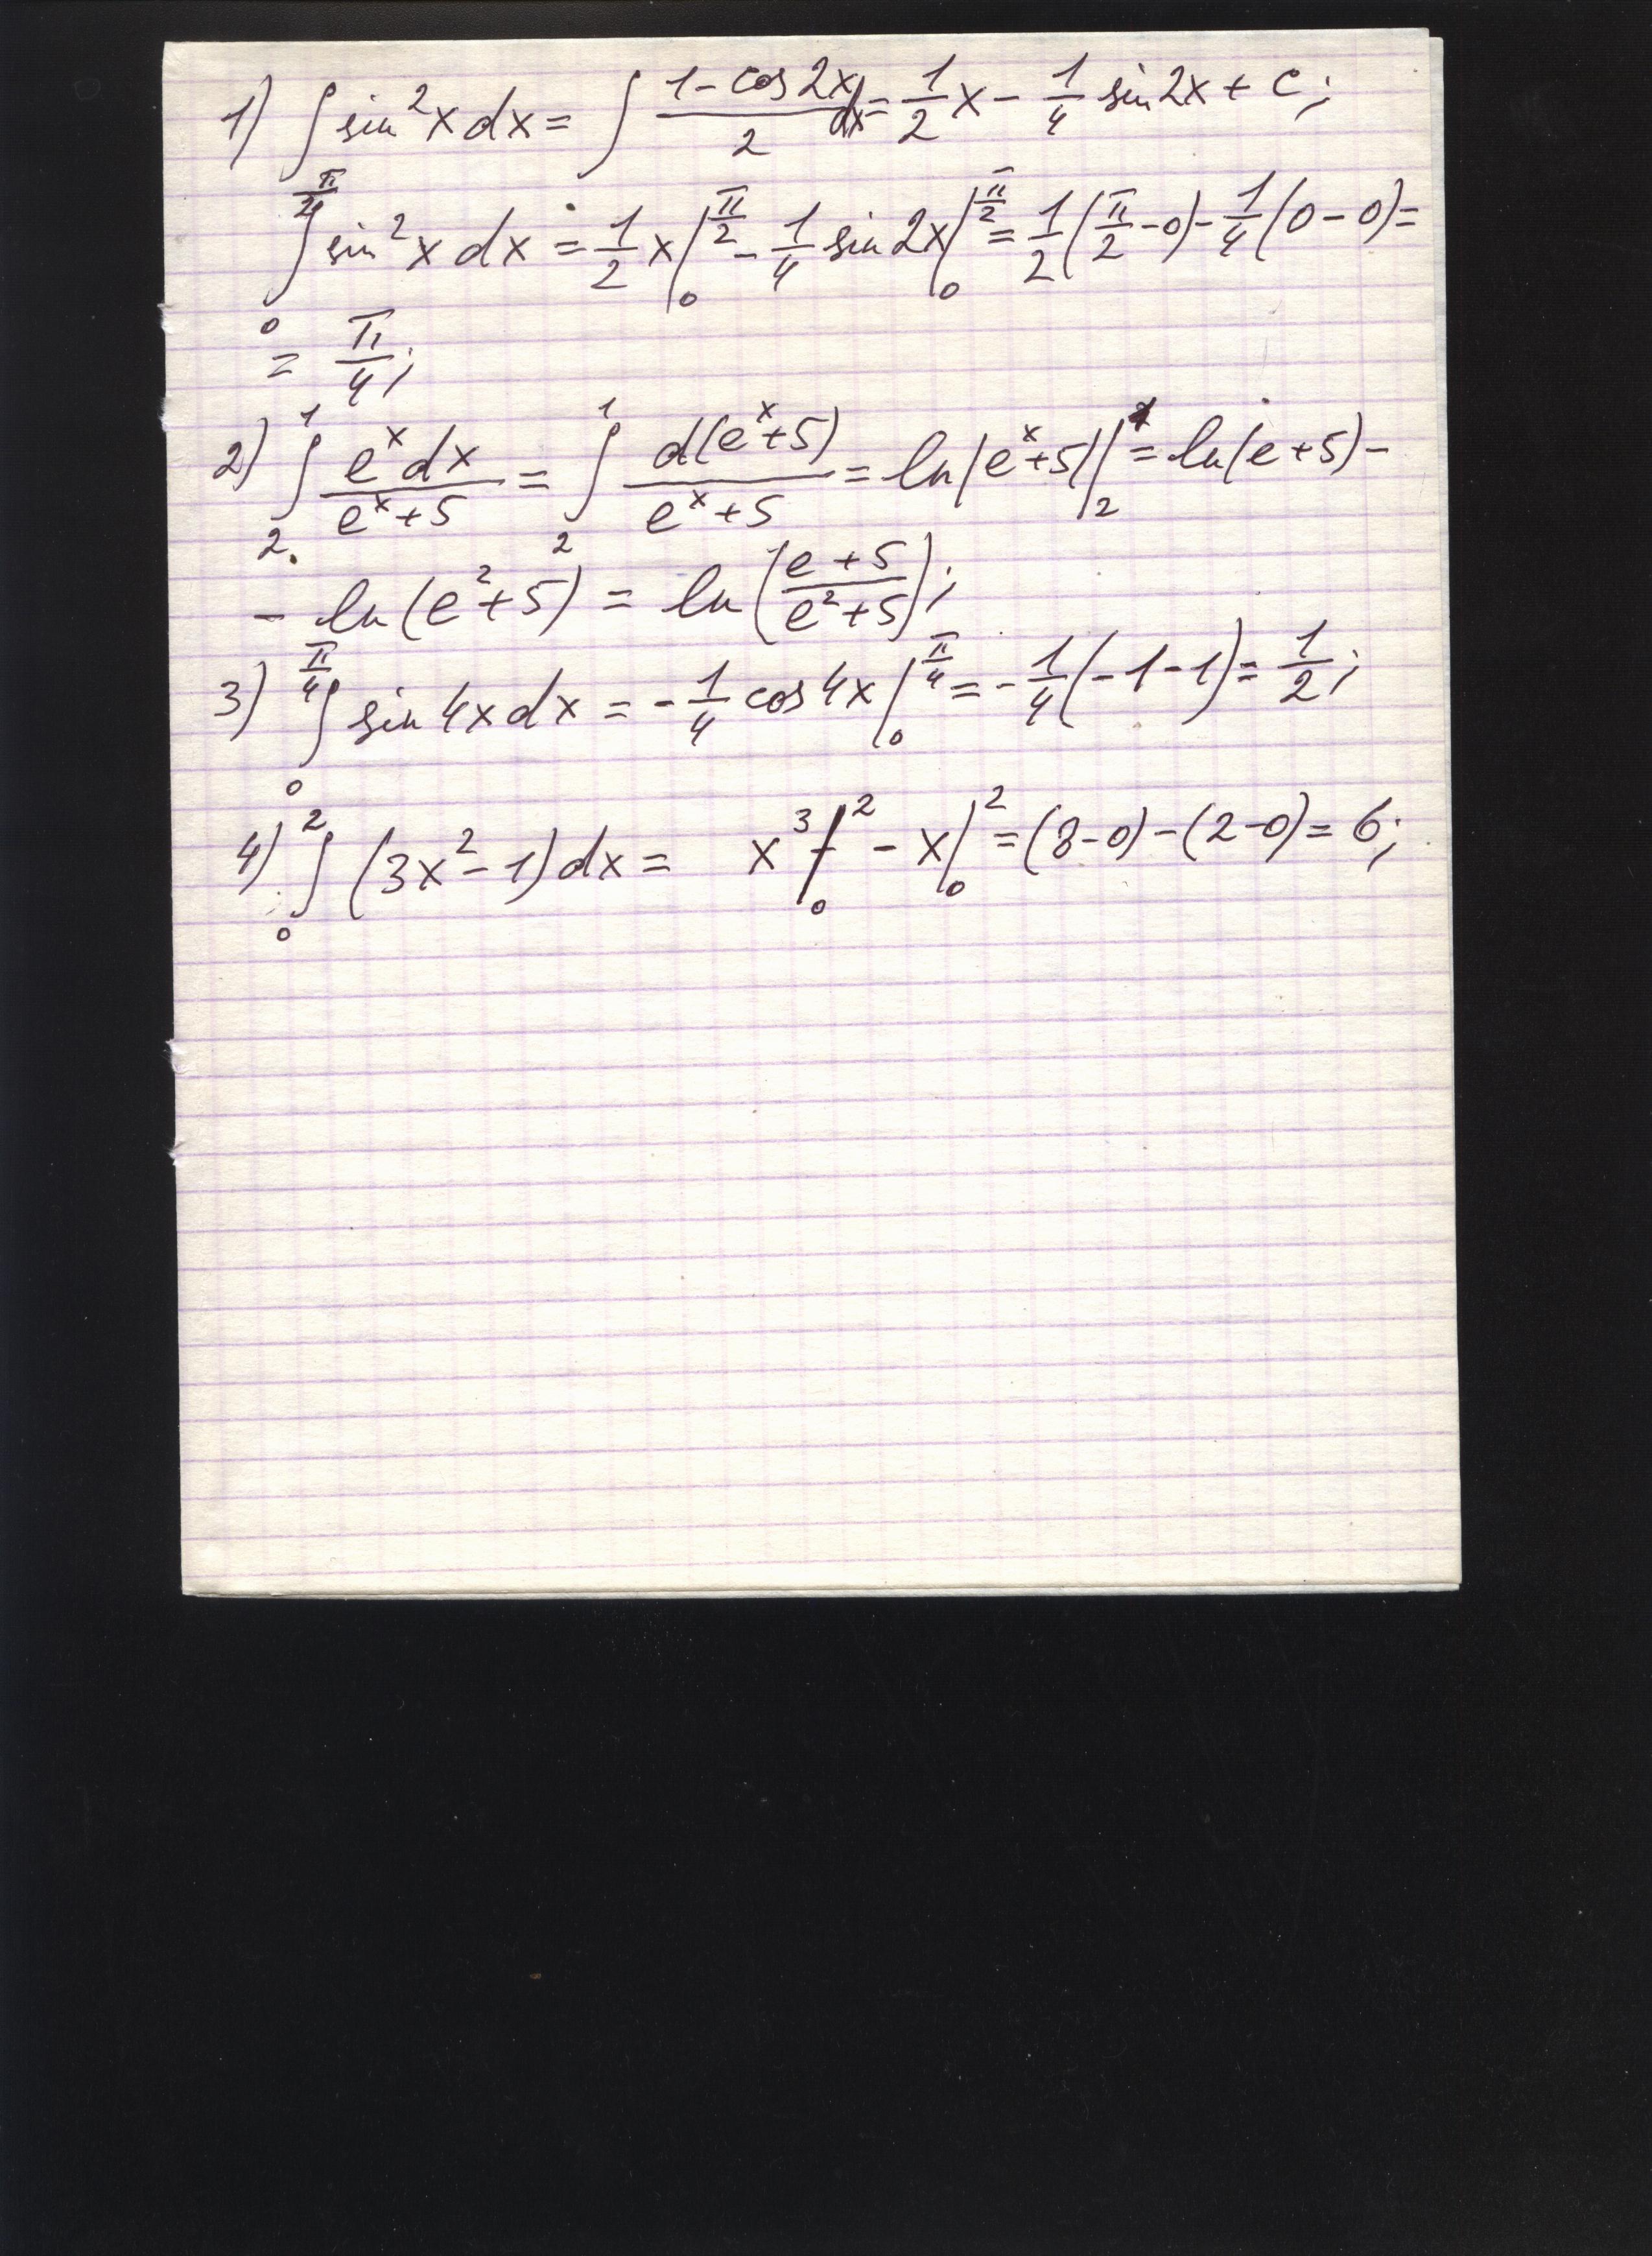 1) ∫ sin²x dx = ∫ (1 - cos 2x)/2 dx = 1/2 x - 1/4 sin 2x + c;
∫₀^(π/2) sin²x dx = 1/2 x |₀^(π/2) - 1/4 sin 2x |₀^(π/2) = 1/2 (π/2 - 0) - 1/4 (0 - 0) =
= π/4;
2) ∫₂¹ (eˣdx)/(eˣ+5) = ∫₂¹ d(eˣ+5)/(eˣ+5) = ln|eˣ+5| |₂¹ = ln(e+5) -
- ln(e²+5) = ln((e+5)/(e²+5));
3) ∫₀^(π/4) sin 4x dx = -1/4 cos 4x |₀^(π/4) = -1/4 (-1-1) = 1/2;
4) ∫₀² (3x²-1)dx = x³ |₀² - x |₀² = (8-0) - (2-0) = 6;